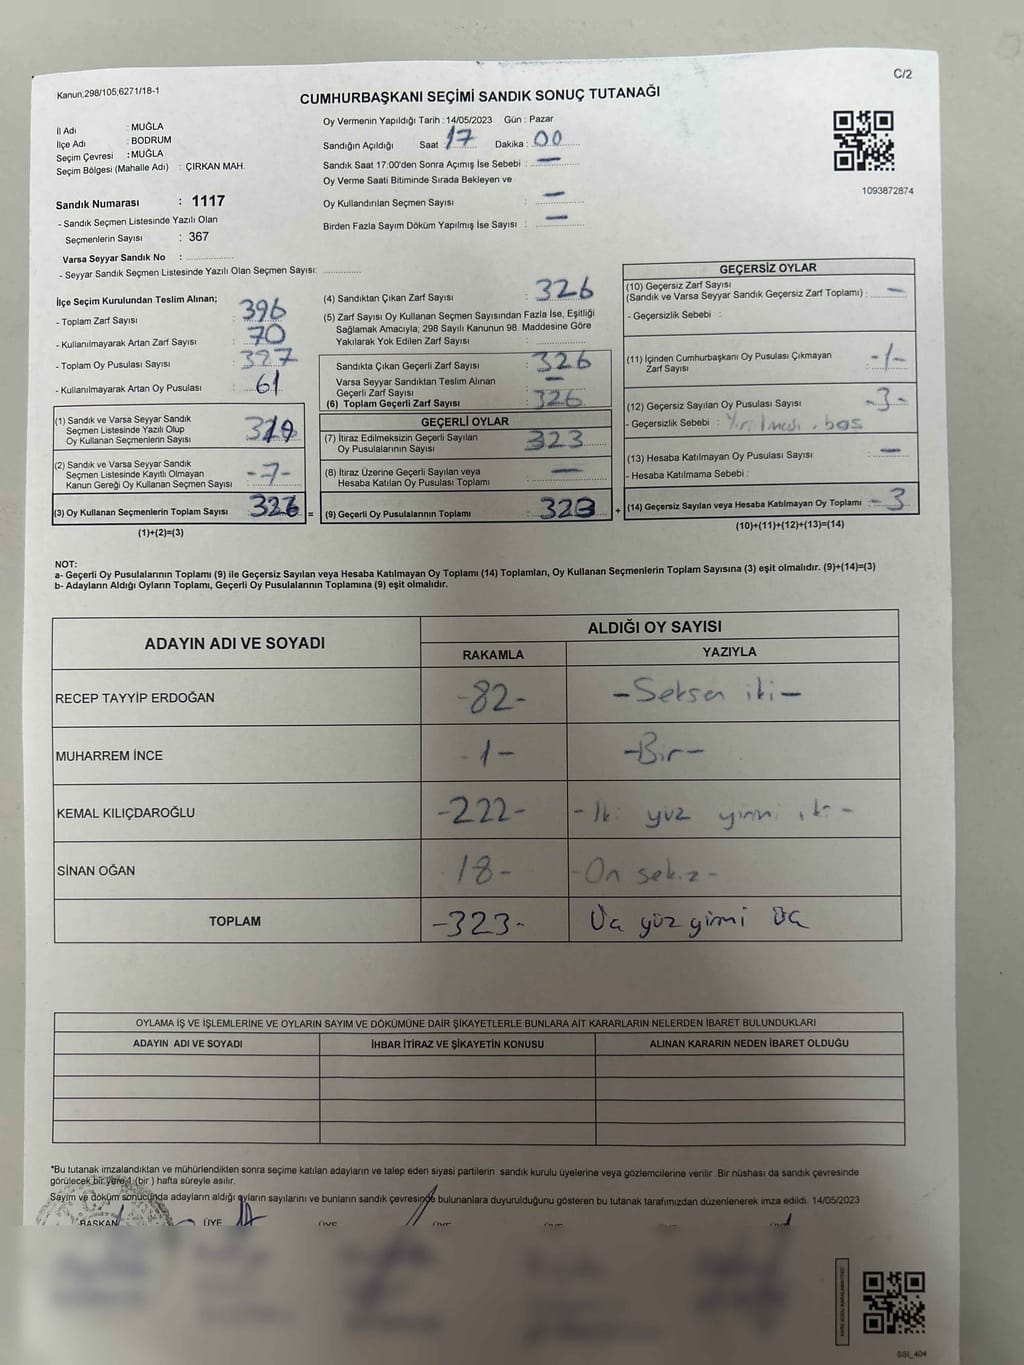 C/2
Kanun,298/105;6271/18-1
CUMHURBAŞKANI SEÇİMİ SANDIK SONUÇ TUTANAĞI
İl Adı : MUĞLA
İlçe Adı : BODRUM
Seçim Çevresi : MUĞLA
Seçim Bölgesi (Mahalle Adı) : ÇIRKAN MAH.
Sandık Numarası : 1117
- Sandık Seçmen Listesinde Yazılı Olan
Seçmenlerin Sayısı : 367
Varsa Seyyar Sandık No :
- Seyyar Sandık Seçmen Listesinde Yazılı Olan Seçmen Sayısı:
Oy Vermenin Yapıldığı Tarih :14/05/2023 Gün : Pazar
Sandığın Açıldığı Saat : 17 Dakika : 00
Sandık Saat 17:00'den Sonra Açımış İse Sebebi : —
Oy Verme Saati Bitiminde Sırada Bekleyen ve
Oy Kullandırılan Seçmen Sayısı : —
Birden Fazla Sayım Döküm Yapılmış İse Sayısı : —
1093872874
İlçe Seçim Kurulundan Teslim Alınan;
- Toplam Zarf Sayısı : 396
- Kullanılmayarak Artan Zarf Sayısı : 70
- Toplam Oy Pusulası Sayısı :
- Kullanılmayarak Artan Oy Pusulası : 61
(1) Sandık ve Varsa Seyyar Sandık
Seçmen Listesinde Yazılı Olup
Oy Kullanan Seçmenlerin Sayısı : 319
(2) Sandık ve Varsa Seyyar Sandık
Seçmen Listesinde Kayıtlı Olmayan
Kanun Gereği Oy Kullanan Seçmen Sayısı : -7-
(3) Oy Kullanan Seçmenlerin Toplam Sayısı 326 =
(1)+(2)=(3)
(4) Sandıktan Çıkan Zarf Sayısı : 326
(5) Zarf Sayısı Oy Kullanan Seçmen Sayısından Fazla İse, Eşitliği
Sağlamak Amacıyla; 298 Sayılı Kanunun 98. Maddesine Göre
Yakılarak Yok Edilen Zarf Sayısı :
Sandıkta Çıkan Geçerli Zarf Sayısı : 326
Varsa Seyyar Sandıktan Teslim Alınan
Geçerli Zarf Sayısı : —
(6) Toplam Geçerli Zarf Sayısı : 326
GEÇERLİ OYLAR
(7) İtiraz Edilmeksizin Geçerli Sayılan
Oy Pusulalarının Sayısı : 323
(8) İtiraz Üzerine Geçerli Sayılan veya
Hesaba Katılan Oy Pusulası Toplamı : —
(9) Geçerli Oy Pusulalarının Toplamı : 323 +
GEÇERSİZ OYLAR
(10) Geçersiz Zarf Sayısı
(Sandık ve Varsa Seyyar Sandık Geçersiz Zarf Toplamı) : —
- Geçersizlik Sebebi :
(11) İçinden Cumhurbaşkanı Oy Pusulası Çıkmayan
Zarf Sayısı : -/-
(12) Geçersiz Sayılan Oy Pusulası Sayısı : -3-
- Geçersizlik Sebebi :
(13) Hesaba Katılmayan Oy Pusulası Sayısı : —
- Hesaba Katılmama Sebebi :
(14) Geçersiz Sayılan veya Hesaba Katılmayan Oy Toplamı - 3
(10)+(11)+(12)+(13)=(14)
NOT:
a- Geçerli Oy Pusulalarının Toplamı (9) ile Geçersiz Sayılan veya Hesaba Katılmayan Oy Toplamı (14) Toplamları, Oy Kullanan Seçmenlerin Toplam Sayısına (3) eşit olmalıdır. (9)+(14)=(3)
b- Adayların Aldığı Oyların Toplamı, Geçerli Oy Pusulalarının Toplamına (9) eşit olmalıdır.
ADAYIN ADI VE SOYADI
ALDIĞI OY SAYISI
RAKAMLA YAZIYLA
RECEP TAYYİP ERDOĞAN -82- -Seksen iki-
MUHARREM İNCE -1- -Bir-
KEMAL KILIÇDAROĞLU -222- -İki yüz yirmi iki-
SİNAN OĞAN 18- -On sekiz-
TOPLAM -323- Üç yüz yirmi üç
OYLAMA İŞ VE İŞLEMLERİNE VE OYLARIN SAYIM VE DÖKÜMÜNE DAİR ŞİKAYETLERLE BUNLARA AİT KARARLARIN NELERDEN İBARET BULUNDUKLARI
ADAYIN ADI VE SOYADI İHBAR İTİRAZ VE ŞİKAYETİN KONUSU ALINAN KARARIN NEDEN İBARET OLDUĞU
*Bu tutanak imzalandıktan ve mühürlendikten sonra seçime katılan adayların ve talep eden siyasi partilerin sandık kurulu üyelerine veya gözlemcilerine verilir .Bir nüshası da sandık çevresinde
görülecek bir yere 1 (bir ) hafta süreyle asılır.
Sayım ve döküm sonucunda adayların aldığı oyların sayılarını ve bunların sandık çevresinde bulunanlara duyurulduğunu gösteren bu tutanak tarafımızdan düzenlenerek imza edildi. 14/05/2023
BAŞKAN ÜYE
SSI_404